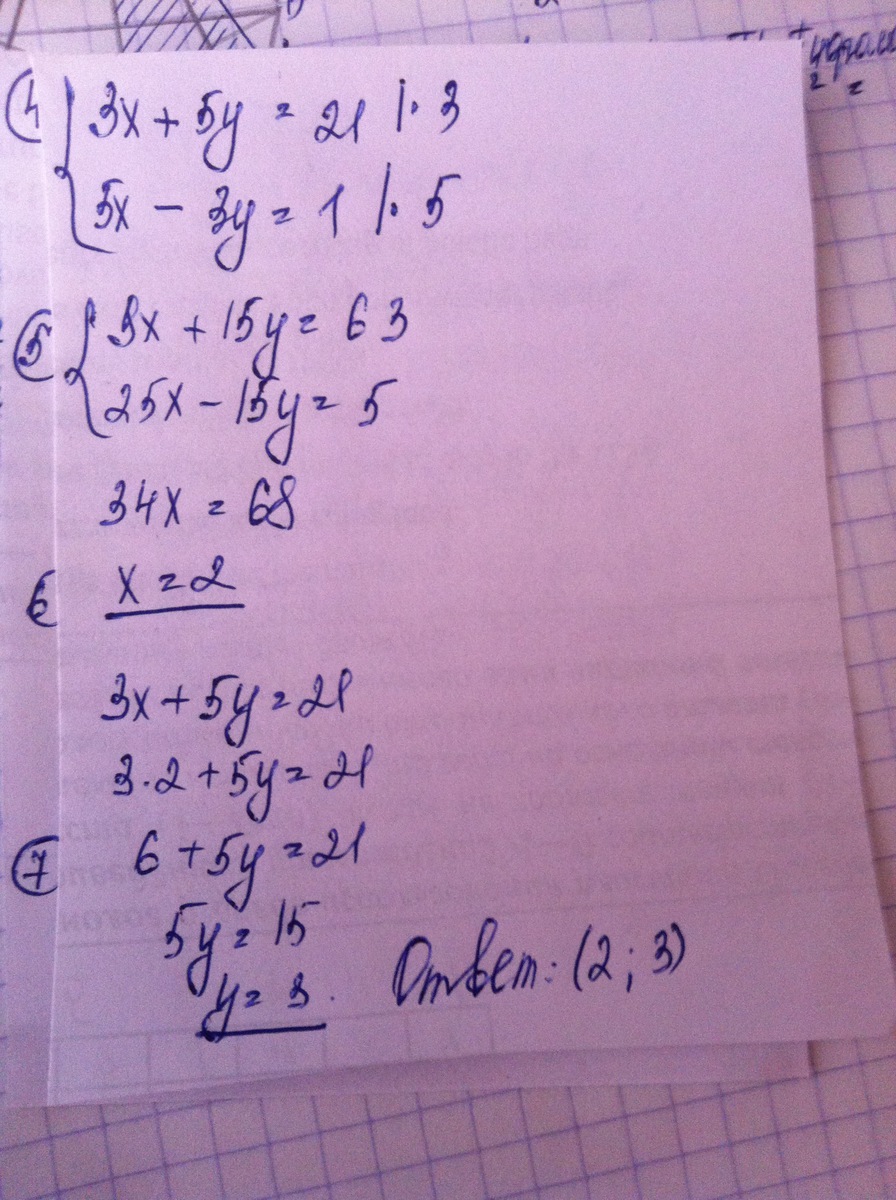 4 { 3x + 5y = 21 |· 3
5x - 3y = 1 |· 5
5 { 9x + 15y = 63
25x - 15y = 5
34x = 68
6 x = 2
3x + 5y = 21
3·2 + 5y = 21
7 6 + 5y = 21
5y = 15
y = 3.
Ответ: (2; 3)